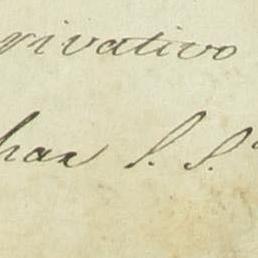 rivativo
has S. S.